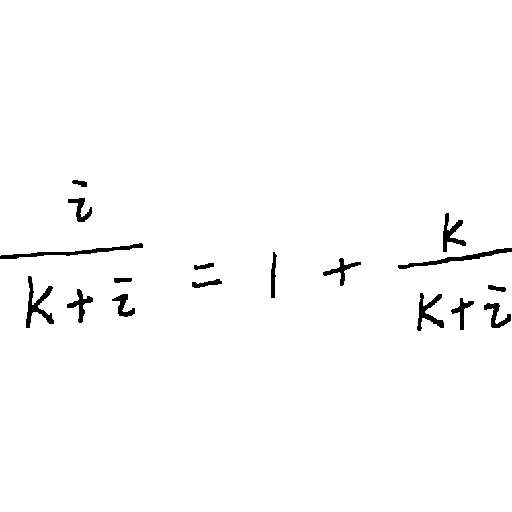 \frac{i}{k+i} = 1 + \frac{k}{k+i}